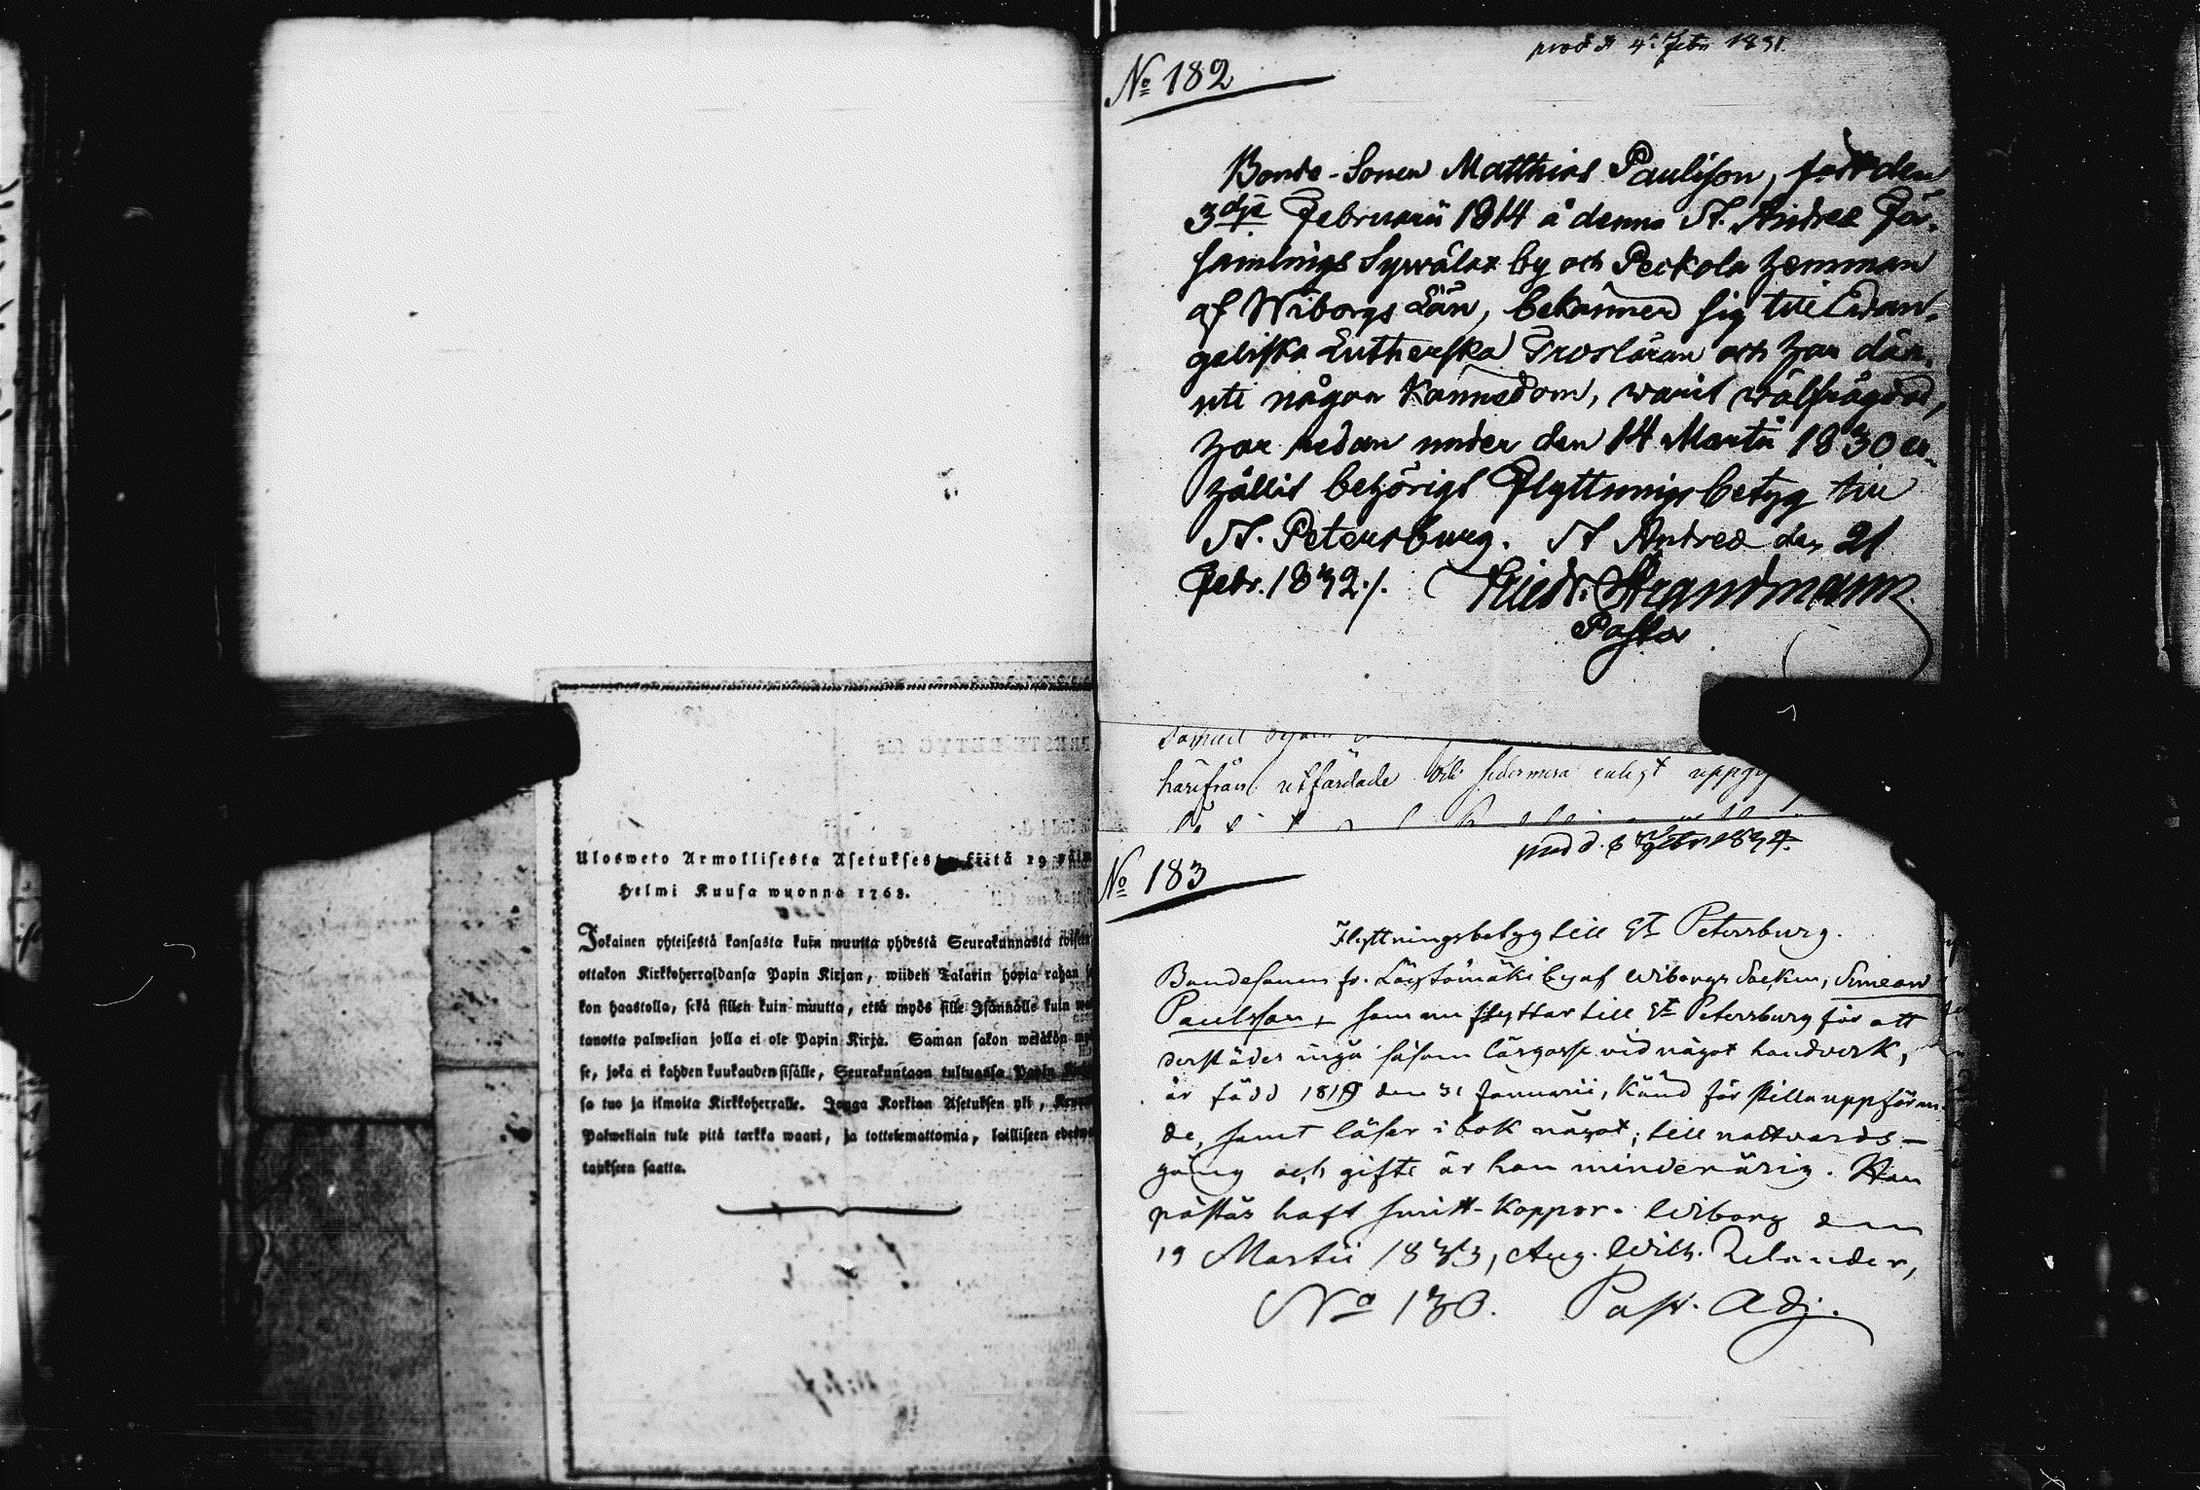 Ulosweto Armollisesta Asetuksesta siitä 19 päiw
Helmi Kuusa wuonna 1768.
Jokainen yhteisestä kansasta kuin muutta yhdestä Seurakunnasta toiseen
ottakon Kirkkoherraldansa Papin Kirjan, wiiden Talarin hopia rahan sa
kon haastolla, sekä sillen kuin muutta, että myös sille Isännälle kuin
tanotta palwelian jolla ei ole Papin Kirja. Saman sakon wetäkön
se, joka ei kahden kuukauden sisälle, Seurakuntaan tultuassa Papin
sa tuo ja ilmoita Kirkkoherralle. Jonga Korkian Asetuksen yli,
Palweliain tule pitä tarkka waari, ja tottelemattomia, lailliseen
taukseen saatta.
prod d 4. Febr 1831.
No 182
Bonde-Sonen Matthias Paulsson, född den
3dje Februarii 1814 å denna St. Andree För-
samlings Sywälax by och Peckola hemman
af Wiborgs Län, bekänner sig till Ewan-
geliska Lutherska Trosläran och har där-
uti någon kännedom, warit wälfrägdad,
har redan under den 14 Martii 1830 er-
hållit behörigt Flyttningsbetyg till
St. Petersburg. St Andree den 21
Febr. 1832./. Friedr. Strandmann
Pastor
Samuel
härifrån utfärdade sedermera enligt
prod d. 8 Febr 1834.
No 183
Flyttningsbetyg till St Petersburg.
Bondesonen fr. Läystömäki by af Wiborgs Socken, Simeon
Paulsson, som nu flyttar till St Petersburg för att
derstädes ingå såsom lärgosse vid något handverk,
är född 1819 den 31 Januarii, känd för stilla uppföran-
de, samt läser i bok något; till nattvards-
gång och gifte är han minderårig. Han
påstås haft smitt-koppor. Wiborg den
19 Martii 1833, Aug. Wilh. Zelander,
No 130. Past. Adj.